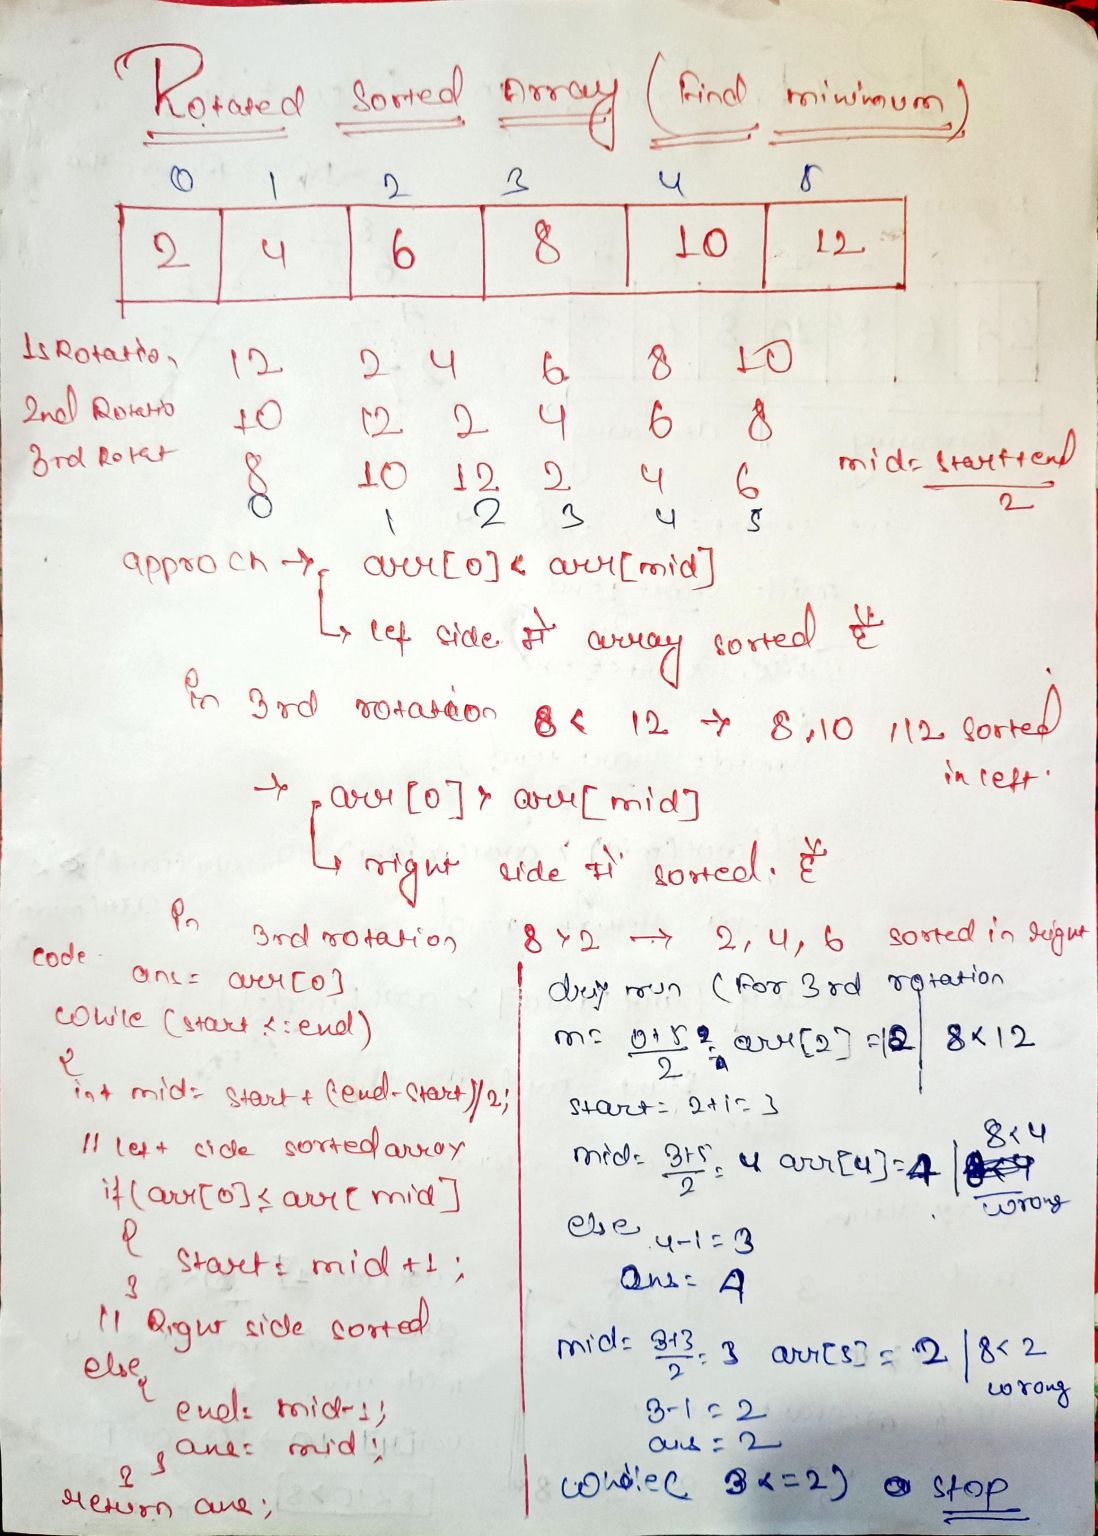 Rotated Sorted Array (Find minimum)
0 1 2 3 4 5
2 4 6 8 10 12
1s Rotation 12 2 4 6 8 10
2nd Rotatio 10 12 2 4 6 8
3rd Rotat 8 10 12 2 4 6
0 1 2 3 4 5
mid = start+end
2
approch → arr[0] < arr[mid]
↳ lef side में array sorted है
In 3rd rotation 8 < 12 → 8,10,12 sorted
in left.
→ arr[0] > arr[mid]
↳ right side में sorted. है
In 3rd rotation 8 > 2 → 2, 4, 6 sorted in right
code
ans = arr[0]
while (start <= end)
{
int mid = start + (end-start)/2;
// left side sorted array
if(arr[0] ≤ arr[mid]
{
start = mid +1;
}
// Right side sorted
else
{
end = mid-1;
ans = mid;
}
}
return ans;
dry run (For 3rd rotation
m = 0+5
2 = 2 arr[2] = 12 | 8<12
start = 2+1 = 3
mid = 3+5
2 = 4 arr[4] = 4 | 8<4
wrong
else 4-1 = 3
ans = 4
mid = 3+3
2 = 3 arr[3] = 2 | 8<2
wrong
3-1 = 2
ans = 2
while( 3<=2) stop